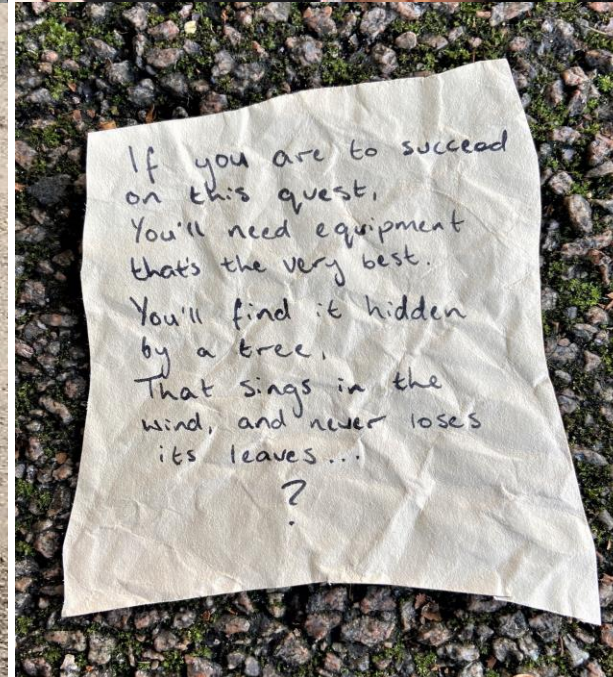 If you are to succeed
on this quest,
You'll need equipment
that's the very best.
You'll find it hidden
by a tree,
That sings in the
wind, and never loses
its leaves...
?